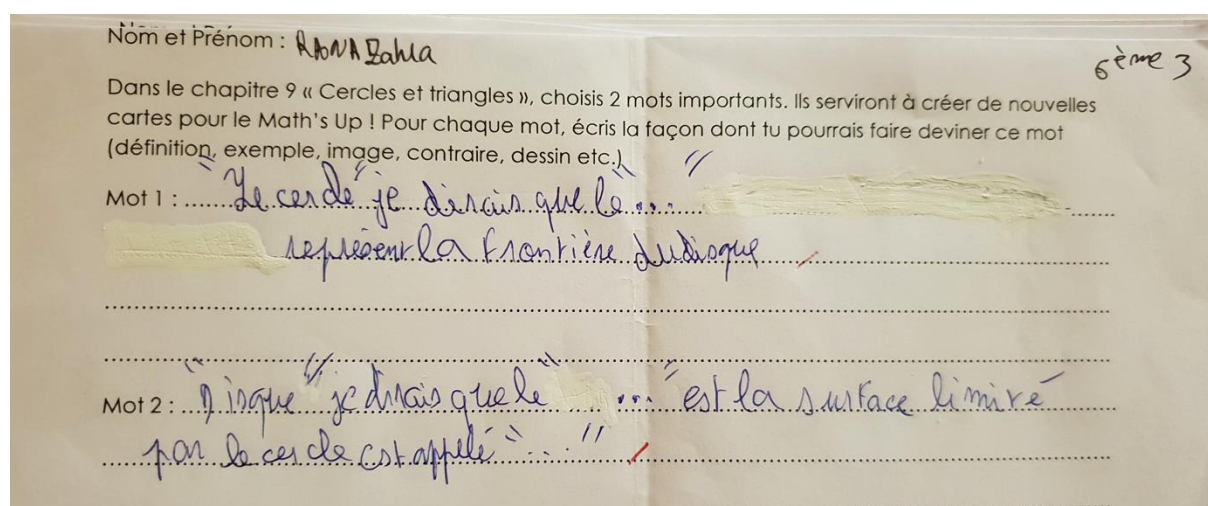 Nom et Prénom : RANA Zahra
6ème 3
Dans le chapitre 9 « Cercles et triangles », choisis 2 mots importants. Ils serviront à créer de nouvelles
cartes pour le Math's Up ! Pour chaque mot, écris la façon dont tu pourrais faire deviner ce mot
(définition, exemple, image, contraire, dessin etc.)
Mot 1 : "Le cercle" je dirais que le "..."
représent la frontière du disque
Mot 2 : "Disque" je dirais que le "..." est la surface limité
par le cercle est appelé "..."